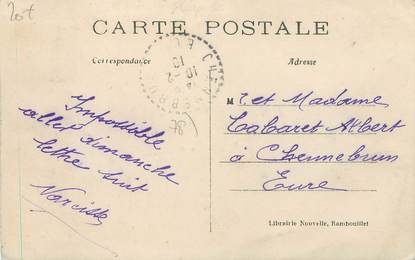 20f
CARTE POSTALE
Correspondance
Adresse
10-2
10
Impossible
aller dimanche
lettre suit
Narcisse
M r et Madame
Cabaret Albert
à Chennebrun
Eure
Librairie Nouvelle, Rambouillet